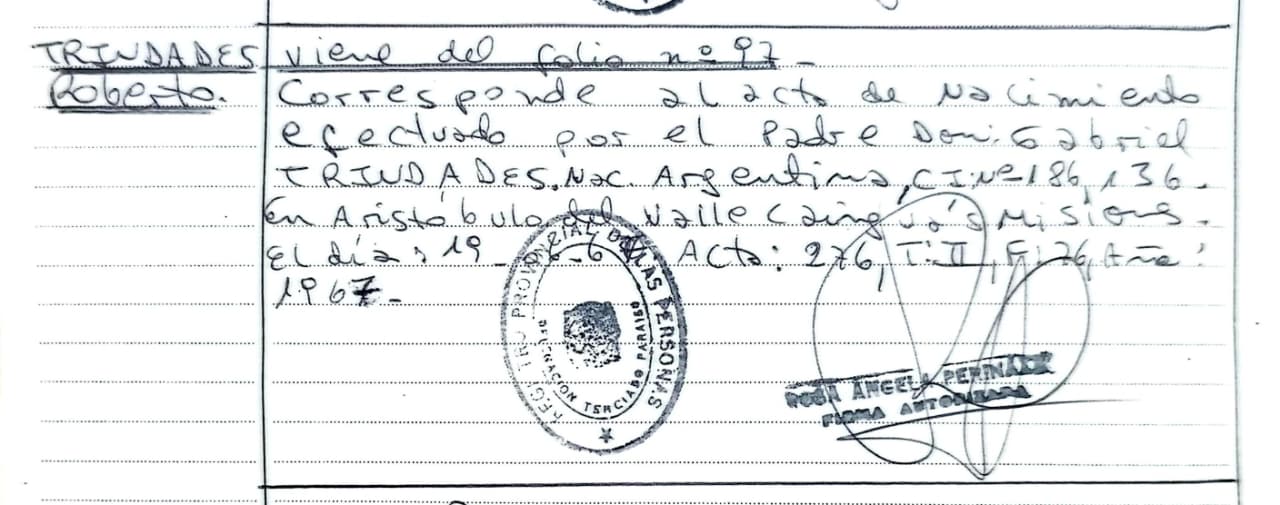 TRINDADES viene del folio nº 97-
Roberto. Corresponde al acta de Nacimiento
efectuado por el Padre Don: Gabriel
TRINDADES. Nac. Argentina, C.I. Nº 186,136-
En Aristóbulo del Valle Cainguá's Misions-
El día: 19-6-67 Acta: 276, T: II, F: 76, Año:
1967-
REGISTRO PROVINCIAL DE LAS PERSONAS
DELEGACION TERCIADO PARAISO
ROSA ANGELA
FIRMA AUTORIZADA